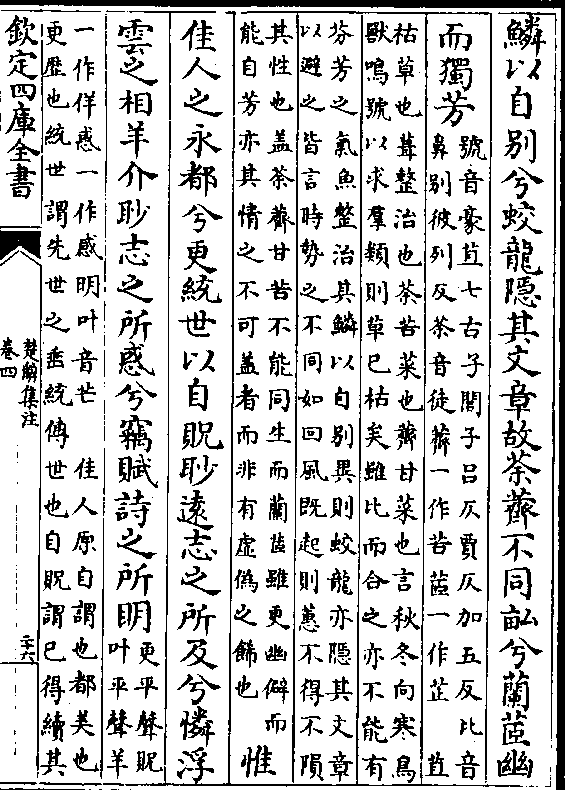 鱗以自别兮蛟龍隠其文章故荼薺不同畆兮蘭茝幽
而獨芳
號音豪苴七古子閭子吕反賈反加五反比音
鼻别彼列反荼音徒薺一作苦茝一作芷　苴
枯草也葺整治也荼苦菜也薺甘菜也言秋冬向寒鳥
獸鳴號以求羣類則草已枯矣雖比而合之亦不能有
芬芳之氣魚整治其鱗以自别異則蛟龍亦隠其文章
以避之皆言時勢之不同如回風既起則蕙不得不隕
其性也盖荼薺甘苦不能同生而蘭茝雖更幽僻而
能自芳亦其情之不可盖者而非有虚偽之飾也
惟
佳人之永都兮更統世以自貺眇遠志之所及兮憐浮
雲之相羊介眇志之所惑兮竊賦詩之所明
更平聲貺
叶平聲羊
一作佯惑一作感明叶音芒　佳人原自謂也都美也
更歴也統世謂先世之垂統傳世也自貺謂已得續其
欽定四庫全書
楚辭集注
卷四
二十六